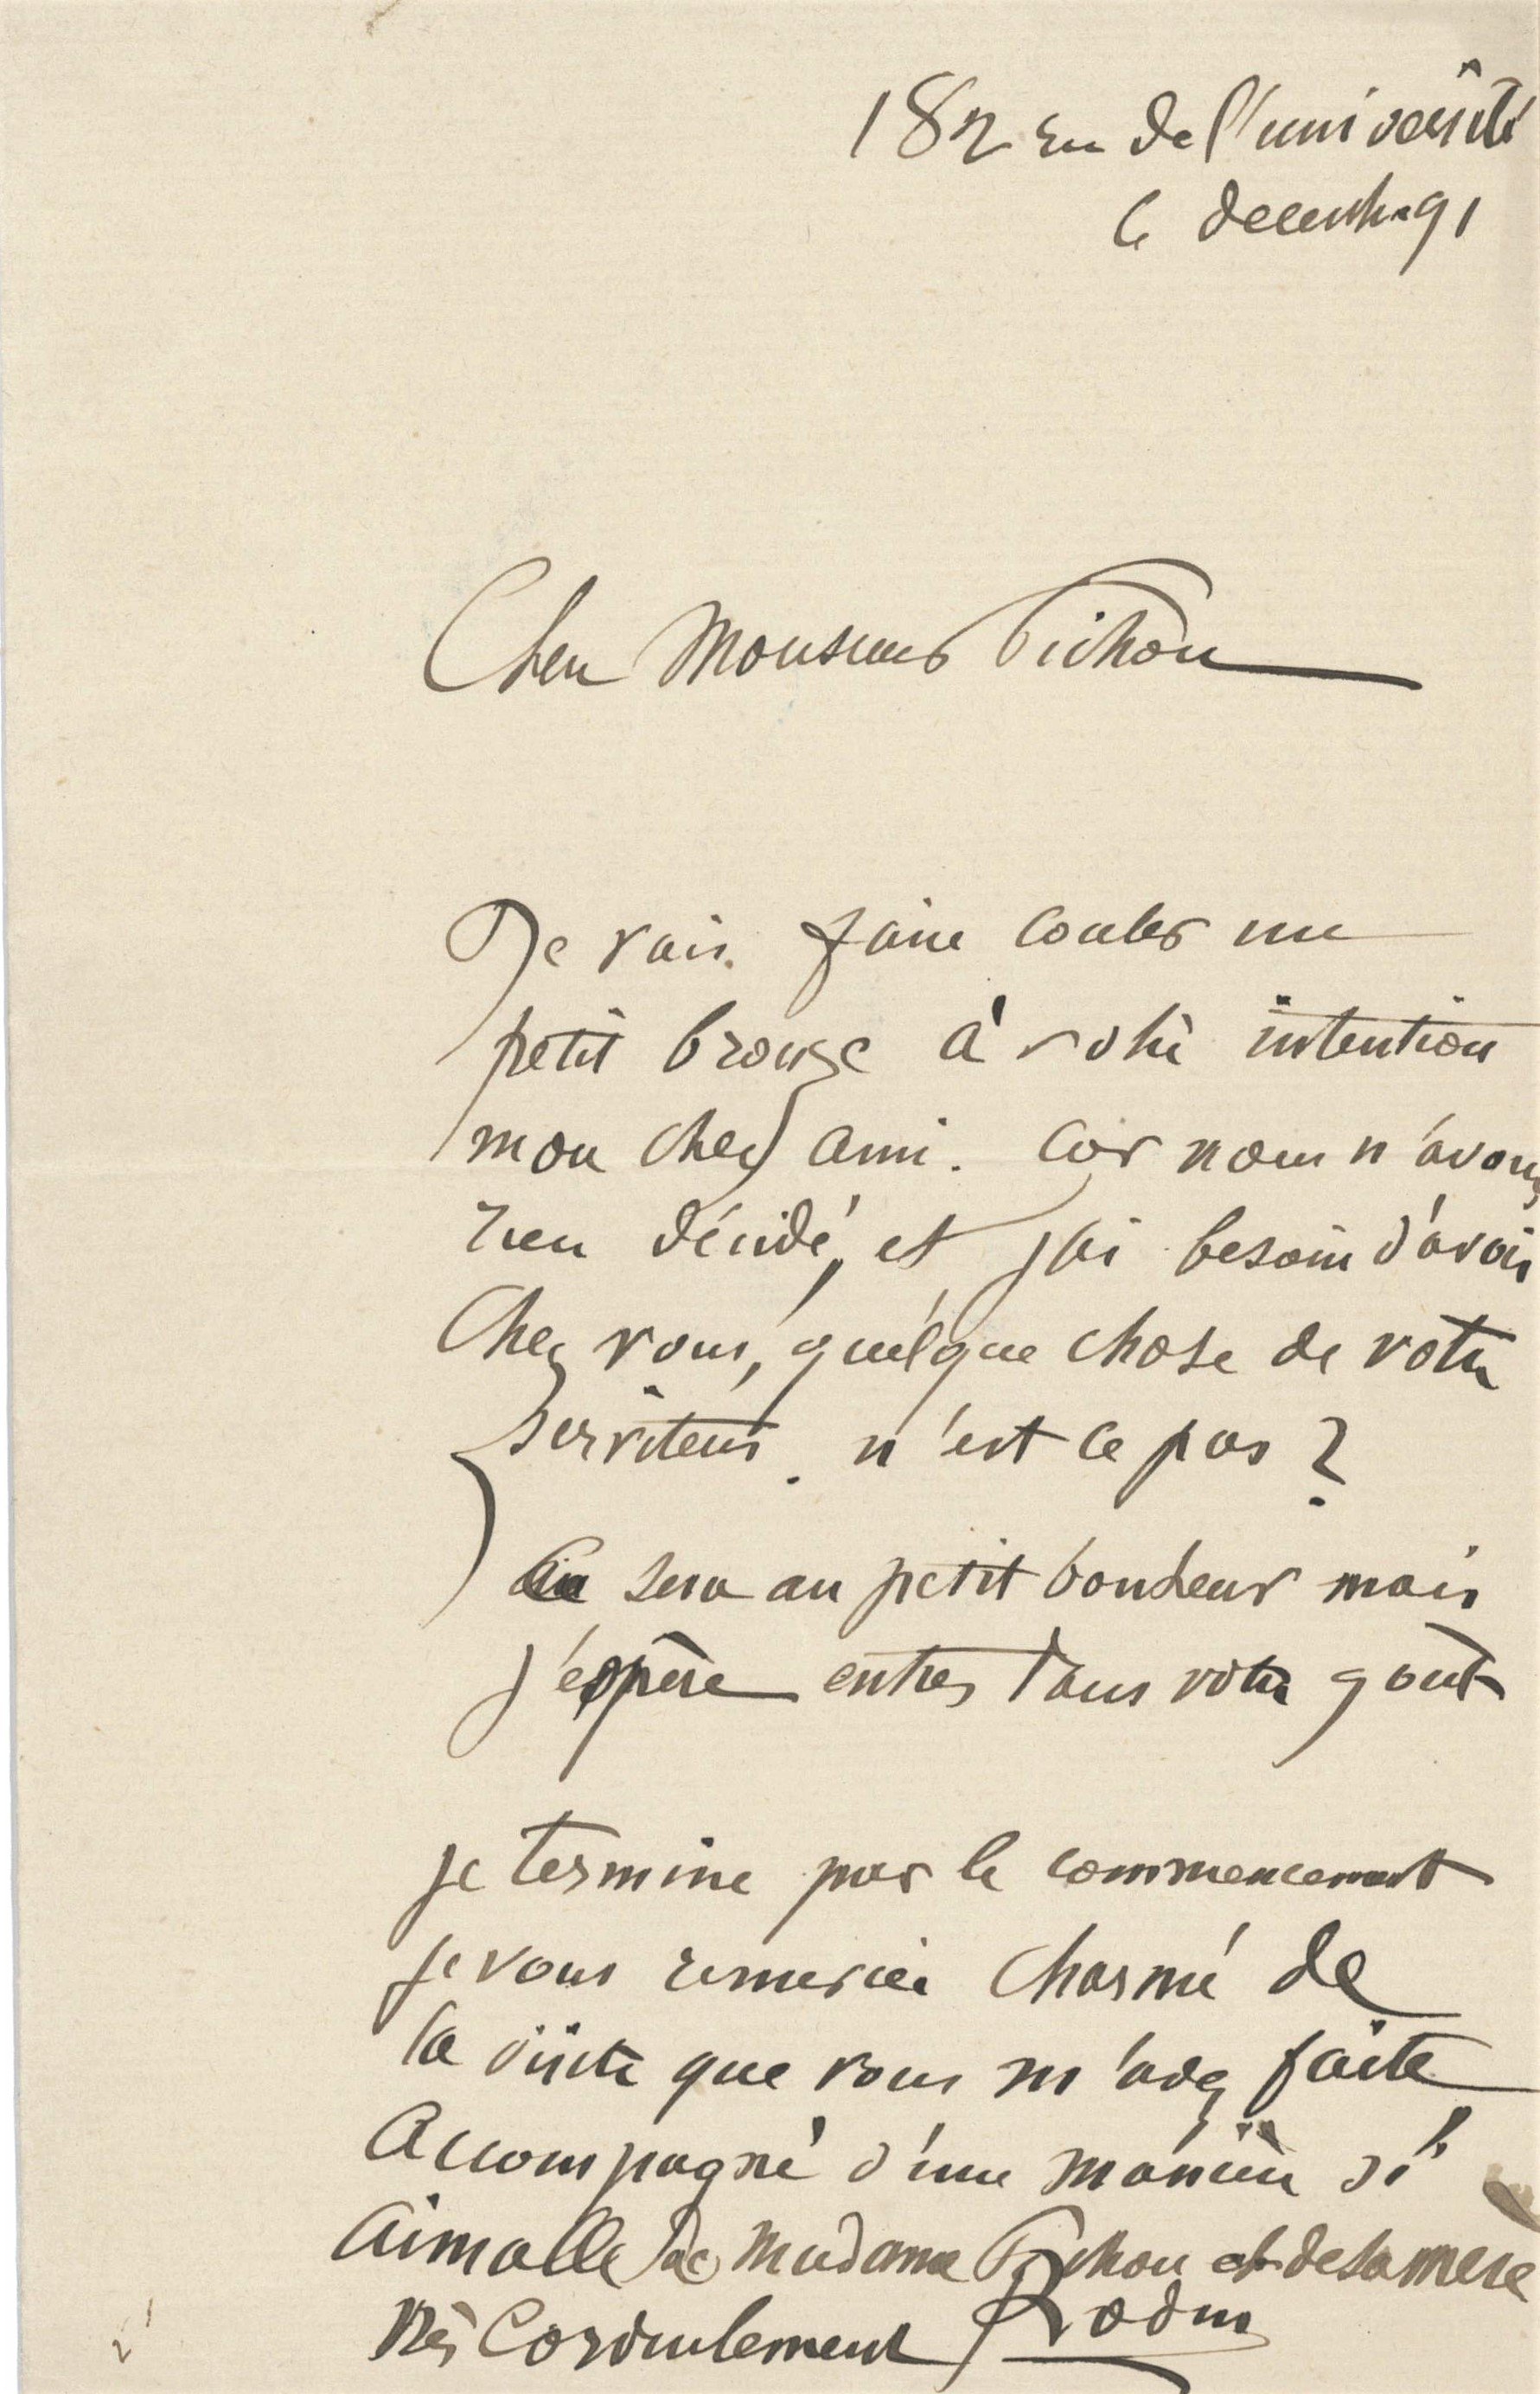 182 rue de l'université
6 decembre 91
Cher Monsieur Pichon
Je vais faire couler un
petit bronze à votre intention
mon cher ami. Car nous n'avons
rien décidé, et j'ai besoin d'avoir
Chez vous, quelque chose de votre
serviteur. n'est ce pas ?
Ce sera au petit bonheur mais
j'espère entrer dans votre goût
je termine par le commencement
je vous remercie charmé de
la visite que vous m'avez faite
Accompagné d'une manière si
Aimable de Madame Pichon et de sa mère
très Cordialement Rodin